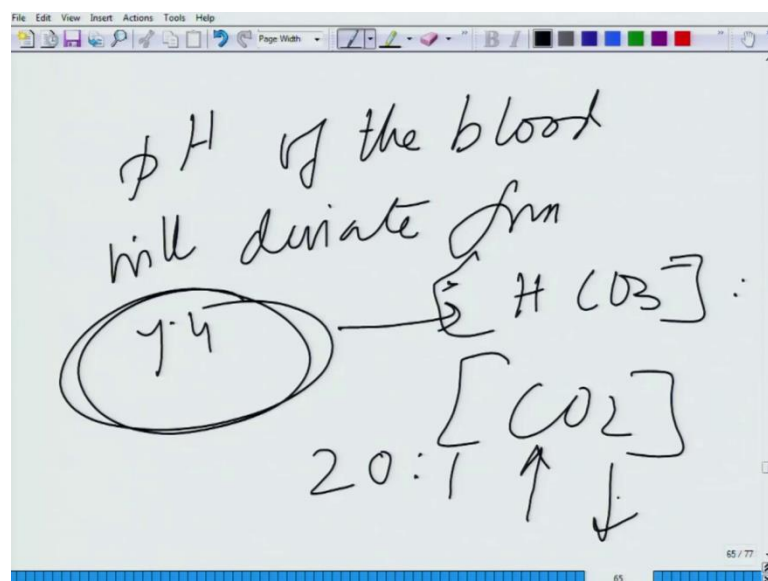 File Edit View Insert Actions Tools Help
Page Width
B I
pH of the blood
will deviate from
7.4
[HCO3⁻] :
[CO2]
20:1
65 / 77
65